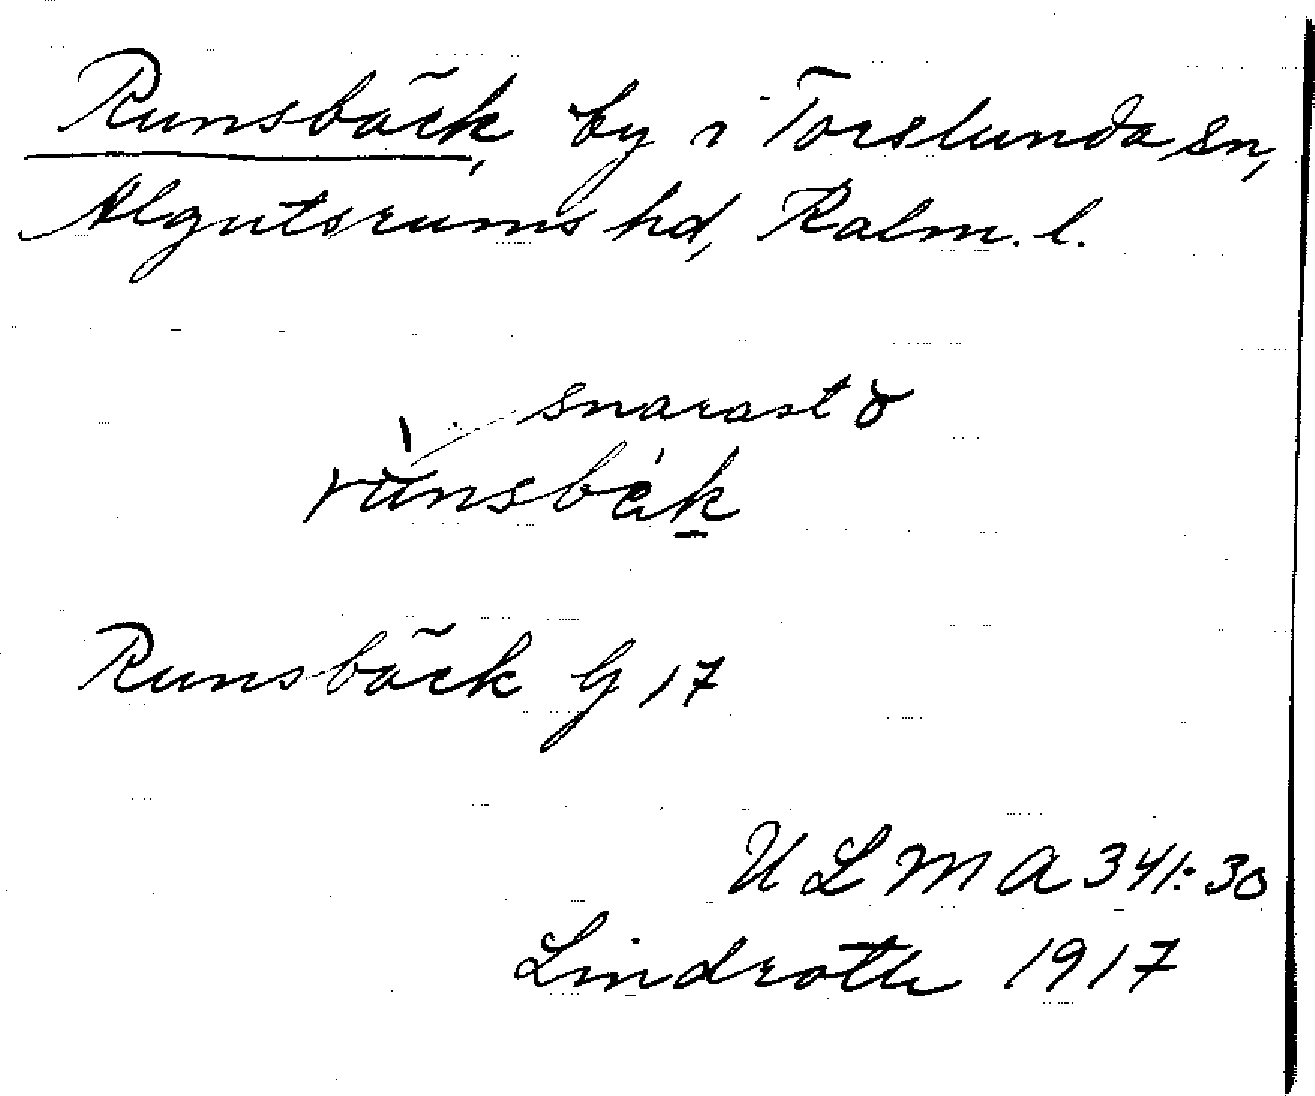 Runsbäck, by i Torslunda sn,
Algutsrums hd, Kalm. l.
snarast
Runsbäck G 17
ULMA 341:30
Lindroth 1917